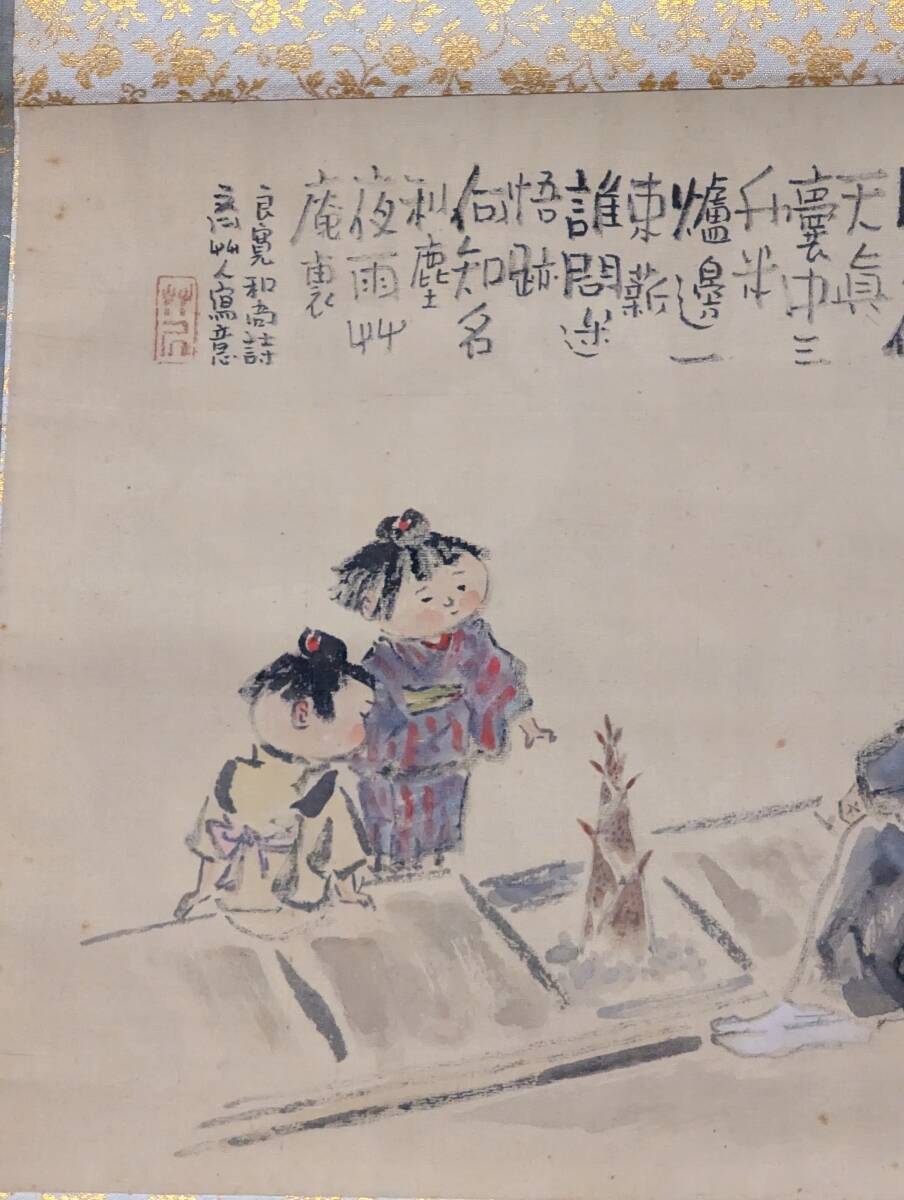 天眞
囊中三
升米
爐邊一
束薪
誰問迷
悟跡
何知名
利塵
夜雨艸
庵裏
良寛和尚詩
艸人寫意